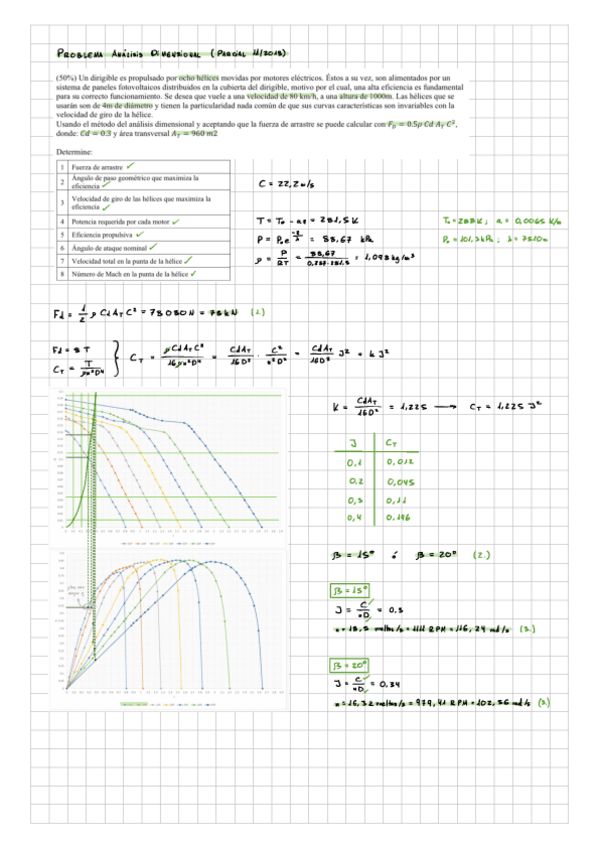 PROBLEMA ANÁLISIS DIMENSIONAL (PARCIAL 11/2018)
(50%) Un dirigible es propulsado por ocho hélices movidas por motores eléctricos. Éstos a su vez, son alimentados por un
sistema de paneles fotovoltaicos distribuidos en la cubierta del dirigible, motivo por el cual, una alta eficiencia es fundamental
para su correcto funcionamiento. Se desea que vuele a una velocidad de 80 km/h, a una altura de 1000m. Las hélices que se
usarán son de 4m de diámetro y tienen la particularidad nada común de que sus curvas características son invariables con la
velocidad de giro de la hélice.
Usando el método del análisis dimensional y aceptando que la fuerza de arrastre se puede calcular con F_D = 0.5ρ Cd A_T C²,
donde: Cd = 0.3 y área transversal A_T = 960 m2
Determine:
1 Fuerza de arrastre ✓
2 Ángulo de paso geométrico que maximiza la
eficiencia ✓
3 Velocidad de giro de las hélices que maximiza la
eficiencia ✓
4 Potencia requerida por cada motor ✓
5 Eficiencia propulsiva ✓
6 Ángulo de ataque nominal ✓
7 Velocidad total en la punta de la hélice ✓
8 Número de Mach en la punta de la hélice ✓
C = 22,2 m/s
T = T₀ - az = 281,5 K
T₀ = 288K ; a = 0,0065 K/m
P = P₀ e^(-z/λ) = 88,67 kPa
P₀ = 101,3 kPa ; λ = 7510m
ρ = P/RT = 88,67/0,287·281,5 = 1,098 kg/m³
Fd = 1/2 ρ Cd A_T C² = 78080N = 78kN (1.)
Fd = 8 T
C_T = T/ρn²D⁴
C_T = ρCdA_TC²/16ρn²D⁴ = CdA_T/16D² · C²/n²D² = CdA_T/16D² J² = k J²
K = CdA_T/16D² = 1,225 → C_T = 1,225 J²
J C_T
0,1 0,012
0,2 0,045
0,3 0,11
0,4 0,196
β = 15° ó β = 20° (2.)
β = 15°
J = C/nD = 0,3
n = 18,5 vueltas/s = 1111 RPM = 116,24 rad/s (3.)
β = 20°
J = C/nD = 0,34
n = 16,32 vueltas/s = 979,41 RPM = 102,56 rad/s (3.)